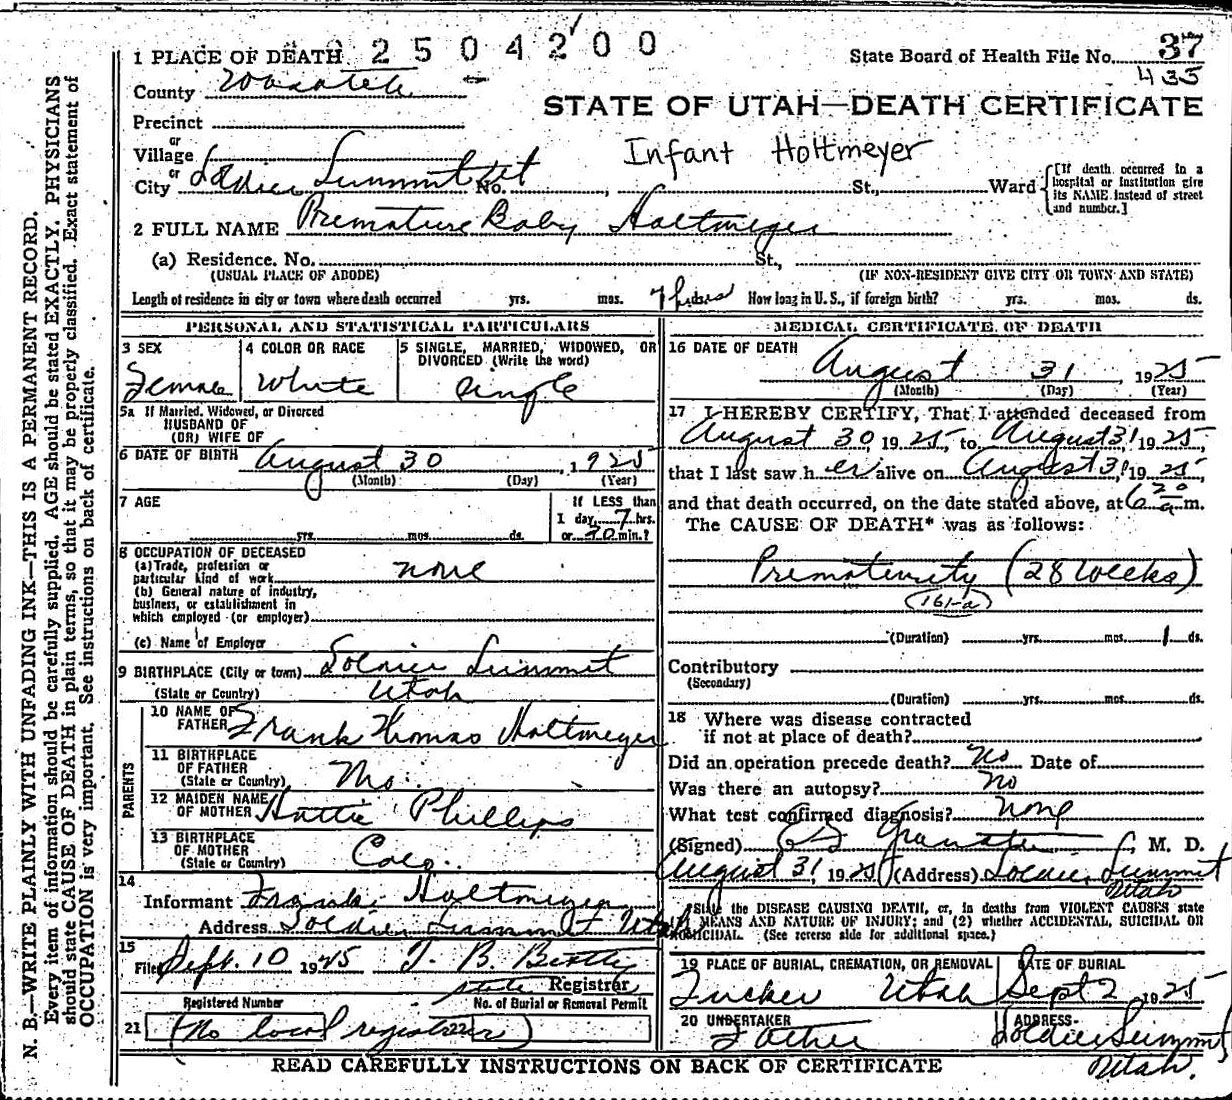 2504200
1 PLACE OF DEATH
State Board of Health File No. 37
435
County Wasatch
STATE OF UTAH—DEATH CERTIFICATE
Precinct
or
Village
Infant Holtmeyer
or
City Soldier Summit No. , St., Ward
[If death occurred in a hospital or institution give its NAME instead of street and number.]
2 FULL NAME Premature Baby Holtmeyer
(a) Residence. No. St.,
(USUAL PLACE OF ABODE) (IF NON-RESIDENT GIVE CITY OR TOWN AND STATE)
Length of residence in city or town where death occurred yrs. mos. 7 hrs ds. How long in U. S., if foreign birth? yrs. mos. ds.
PERSONAL AND STATISTICAL PARTICULARS
3 SEX
Female
4 COLOR OR RACE
White
5 SINGLE, MARRIED, WIDOWED, OR
DIVORCED (Write the word)
Single
5a If Married, Widowed, or Divorced
HUSBAND OF
(OR) WIFE OF
6 DATE OF BIRTH August 30, 1925
(Month) (Day) (Year)
7 AGE
yrs. mos. ds.
If LESS than
1 day, 7 hrs.
or 20 min.?
8 OCCUPATION OF DECEASED
(a) Trade, profession or
particular kind of work none
(b) General nature of industry,
business, or establishment in
which employed (or employer)
(c) Name of Employer
9 BIRTHPLACE (City or town) Soldier Summit
(State or Country) Utah
PARENTS
10 NAME OF
FATHER Frank Thomas Holtmeyer
11 BIRTHPLACE
OF FATHER
(State or Country) Mo.
12 MAIDEN NAME
OF MOTHER Hattie Phillips
13 BIRTHPLACE
OF MOTHER
(State or Country) Colo.
14
Informant Frank Holtmeyer
Address Soldier Summit Utah
15
Filed Sept. 10 1925 T. B. Beatty
State Registrar
Registered Number No. of Burial or Removal Permit
21 (No local registrar)
MEDICAL CERTIFICATE OF DEATH
16 DATE OF DEATH
August 31, 1925
(Month) (Day) (Year)
17 I HEREBY CERTIFY, That I attended deceased from
August 30, 1925, to August 31, 1925,
that I last saw her alive on August 31, 1925
and that death occurred, on the date stated above, at 6 20 a m.
The CAUSE OF DEATH* was as follows:
Prematurity (28 weeks)
(161-a)
(Duration) yrs. mos. 1 ds.
Contributory
(Secondary)
(Duration) yrs. mos. ds.
18 Where was disease contracted
if not at place of death?
Did an operation precede death? No Date of
Was there an autopsy? no
What test confirmed diagnosis? none
(Signed) , M. D.
August 31, 1925 (Address) Soldier Summit
Utah
State the DISEASE CAUSING DEATH, or, in deaths from VIOLENT CAUSES state
MEANS AND NATURE OF INJURY; and (2) whether ACCIDENTAL, SUICIDAL OR
HOMICIDAL. (See reverse side for additional space.)
19 PLACE OF BURIAL, CREMATION, OR REMOVAL
Tucker Utah
DATE OF BURIAL
Sept 2, 1925
20 UNDERTAKER
Father
ADDRESS
Soldier Summit
Utah.
READ CAREFULLY INSTRUCTIONS ON BACK OF CERTIFICATE
N. B.—WRITE PLAINLY WITH UNFADING INK—THIS IS A PERMANENT RECORD.
Every item of information should be carefully supplied. AGE should be stated EXACTLY. PHYSICIANS
should state CAUSE OF DEATH in plain terms, so that it may be properly classified. Exact statement of
OCCUPATION is very important. See instructions on back of certificate.